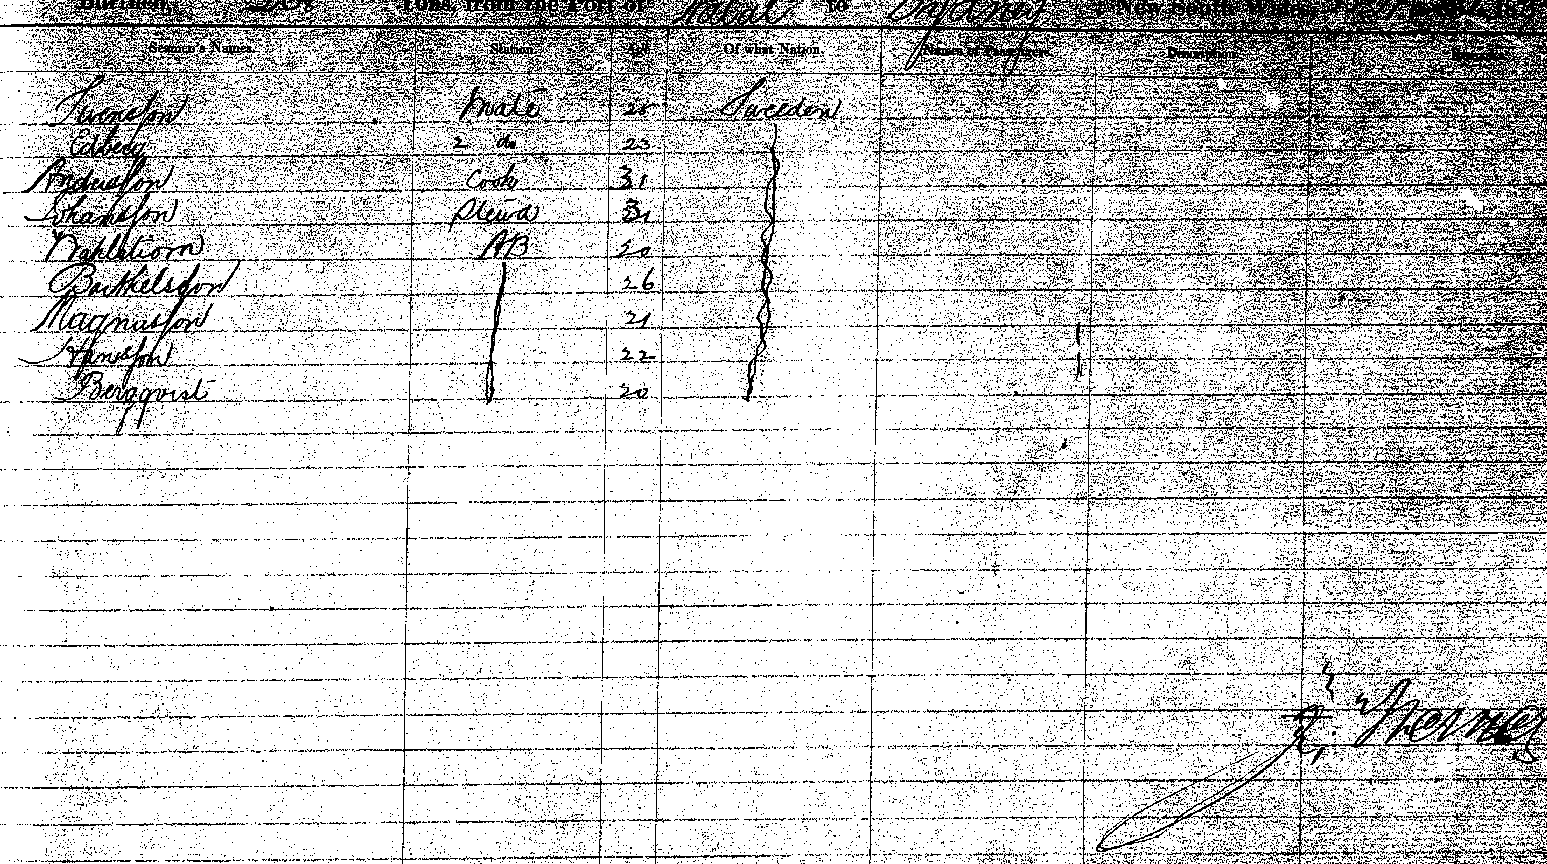 Burthen Tons, from the Port of Natal to Sydney New South Wales
Seamen's Names. Station Age Of what Nation. Names of Passengers.
Svensson Mate 25 Sweden
Edberg 2 do 23
Andersson Cook 31
Johansson Steward
AB 20
Barthelsson 26
Magnusson 21
Hansson 22
Bergqvist 20